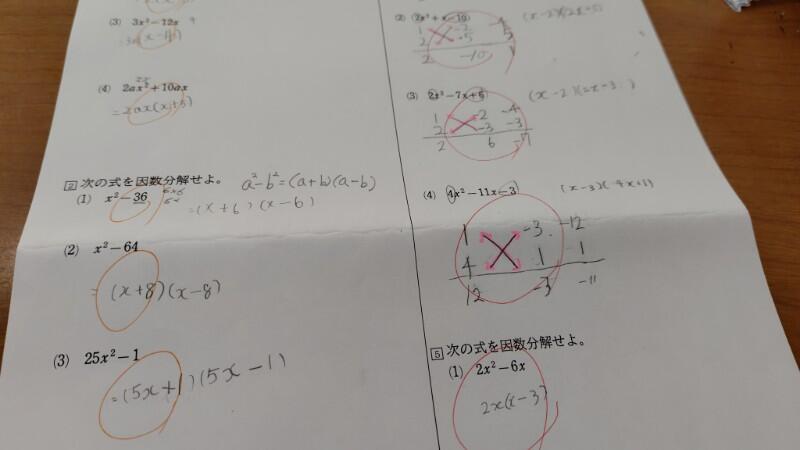 (3) 3x²−12x
(4) 2ax²+10ax
=2ax(x+5)
2 次の式を因数分解せよ。 a²−b²=(a+b)(a−b)
(1) x²−36
=(x+6)(x−6)
(2) x²−64
=(x+8)(x−8)
(3) 25x²−1
=(5x+1)(5x−1)
(2) 2x²+x−10 (x−2)(2x+5)
1 −2 −4
2 +5 5
2 −10 1
(3) 2x²−7x+6
1 −2 −4
2 −3 −3
2 6 −7
(4) 4x²−11x−3 (x−3)(4x+1)
1 −3 −12
4 1 1
12 −3 −11
5 次の式を因数分解せよ。
(1) 2x²−6x
2x(x−3)